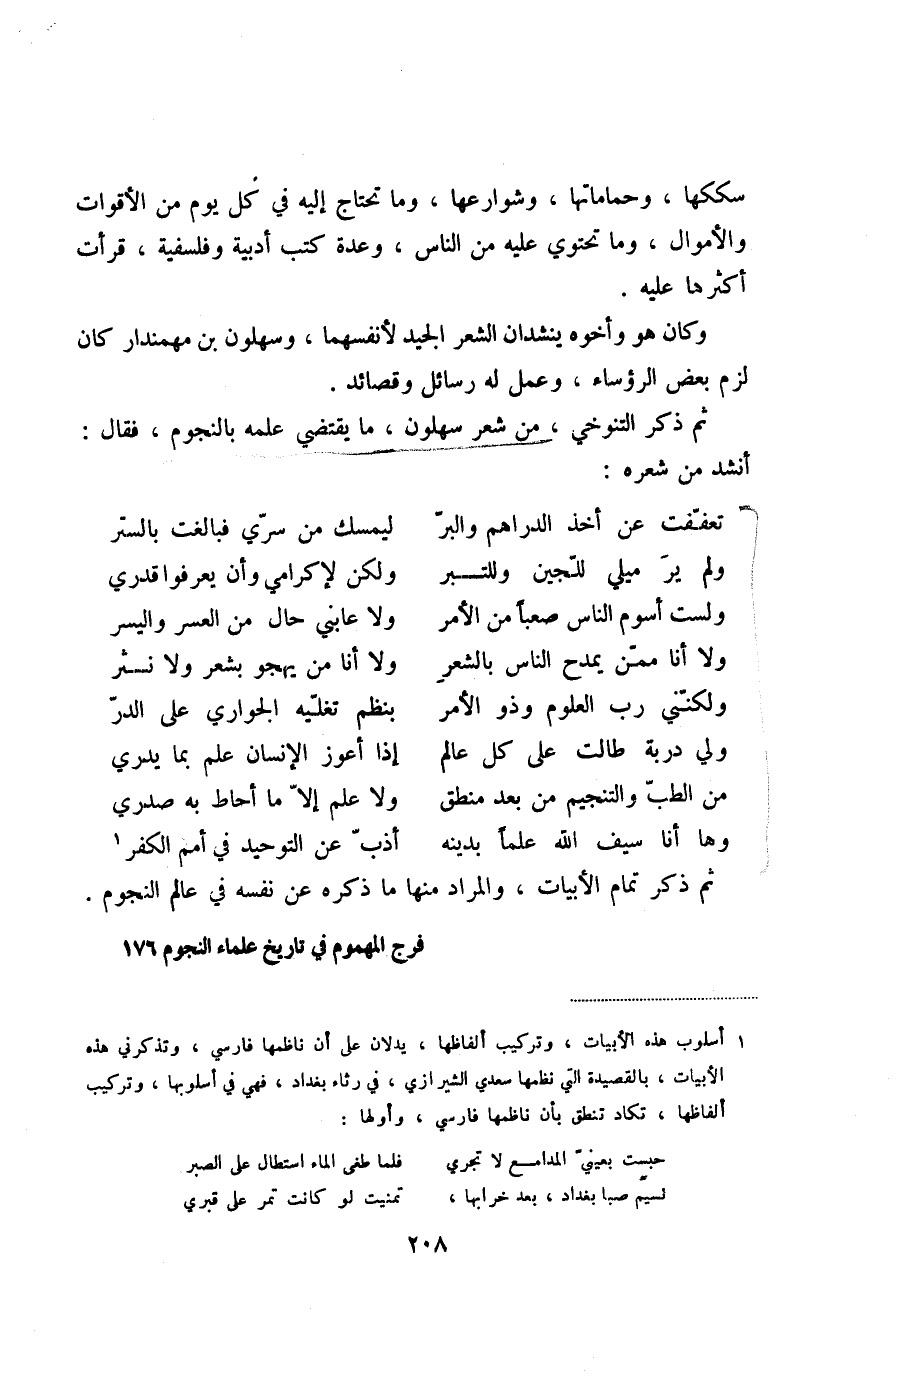 سككها ، وحماماتها ، وشوارعها ، وما تحتاج إليه في كل يوم من الأقوات
والأموال ، وما تحتوي عليه من الناس ، وعدة كتب أدبية وفلسفية ، قرأت
أكثرها عليه .
وكان هو وأخوه ينشدان الشعر الجيد لأنفسهما ، وسهلون بن مهمندار كان
لزم بعض الرؤساء ، وعمل له رسائل وقصائد .
ثم ذكر التنوخي ، من شعر سهلون ، ما يقتضي علمه بالنجوم ، فقال :
أنشد من شعره :
تعفّفت عن أخذ الدراهم والبرّ ليمسك من سرّي فبالغت بالستر
ولم يرَ ميلي للّجين وللتـبر ولكن لإكرامي وأن يعرفوا قدري
ولست أسوم الناس صعباً من الأمر ولا عابني حال من العسر واليسر
ولا أنا ممّن يمدح الناس بالشعرِ ولا أنا من يهجو بشعر ولا نـثر
ولكنّني رب العلوم وذو الأمر بنظم تغلّيه الجواري على الدرّ
ولي دربة طالت على كل عالم إذا أعوز الإنسان علم بما يدري
من الطبّ والتنجيم من بعد منطق ولا علم إلاّ ما أحاط به صدري
وها أنا سيف الله علماً بدينه أذبّ عن التوحيد في أمم الكفر ١
ثم ذكر تمام الأبيات ، والمراد منها ما ذكره عن نفسه في عالم النجوم .
فرج المهموم في تاريخ علماء النجوم ١٧٦
١ أسلوب هذه الأبيات ، وتركيب ألفاظها ، يدلان على أن ناظمها فارسي ، وتذكرني هذه
الأبيات ، بالقصيدة التي نظمها سعدي الشيرازي ، في رثاء بغداد ، فهي في أسلوبها ، وتركيب
ألفاظها ، تكاد تنطق بأن ناظمها فارسي ، وأولها :
حبست بعينيّ المدامـع لا تجري فلما طغى الماء استطال على الصبر
نسيم صبا بغداد ، بعد خرابها ، تمنيت لو كانت تمر على قبري
٢٠٨